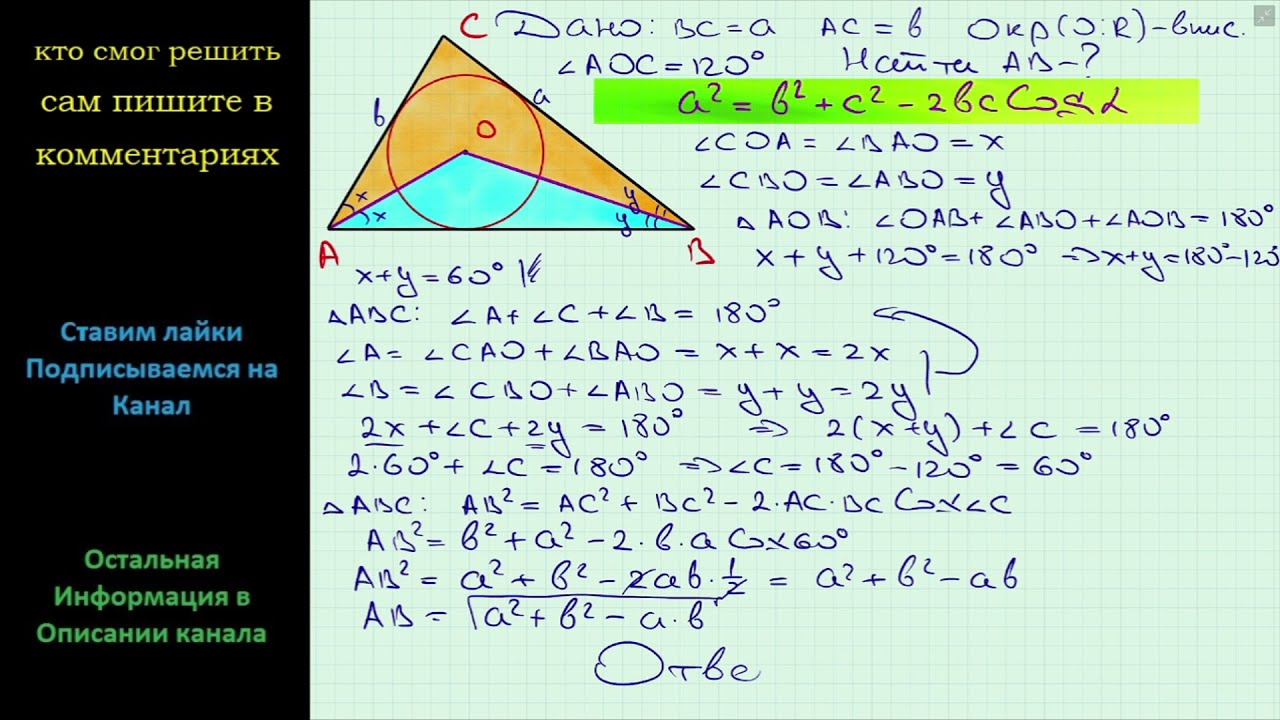 кто смог решить
сам пишите в
комментариях
Ставим лайки
Подписываемся на
Канал
Остальная
Информация в
Описании канала
Дано: BC = a AC = b Окр(O:R)-впис.
∠AOC = 120° Найти AB-?
a² = b² + c² - 2bc Cos α
C
b
a
O
x
x
y
y
A
B
∠COA = ∠BAO = x
∠CBO = ∠ABO = y
△AOB: ∠OAB + ∠ABO + ∠AOB = 180°
x + y + 120° = 180° ⇒ x+y = 180°-120°
x+y = 60°
△ABC: ∠A + ∠C + ∠B = 180°
∠A = ∠CAO + ∠BAO = x + x = 2x
∠B = ∠CBO + ∠ABO = y + y = 2y
2x + ∠C + 2y = 180° ⇒ 2(x+y) + ∠C = 180°
2·60° + ∠C = 180° ⇒ ∠C = 180° - 120° = 60°
△ABC: AB² = AC² + BC² - 2·AC·BC Cos∠C
AB² = b² + a² - 2·b·a Cos60°
AB² = a² + b² - 2ab·1/2 = a² + b² - ab
AB = √a² + b² - a·b
Отве